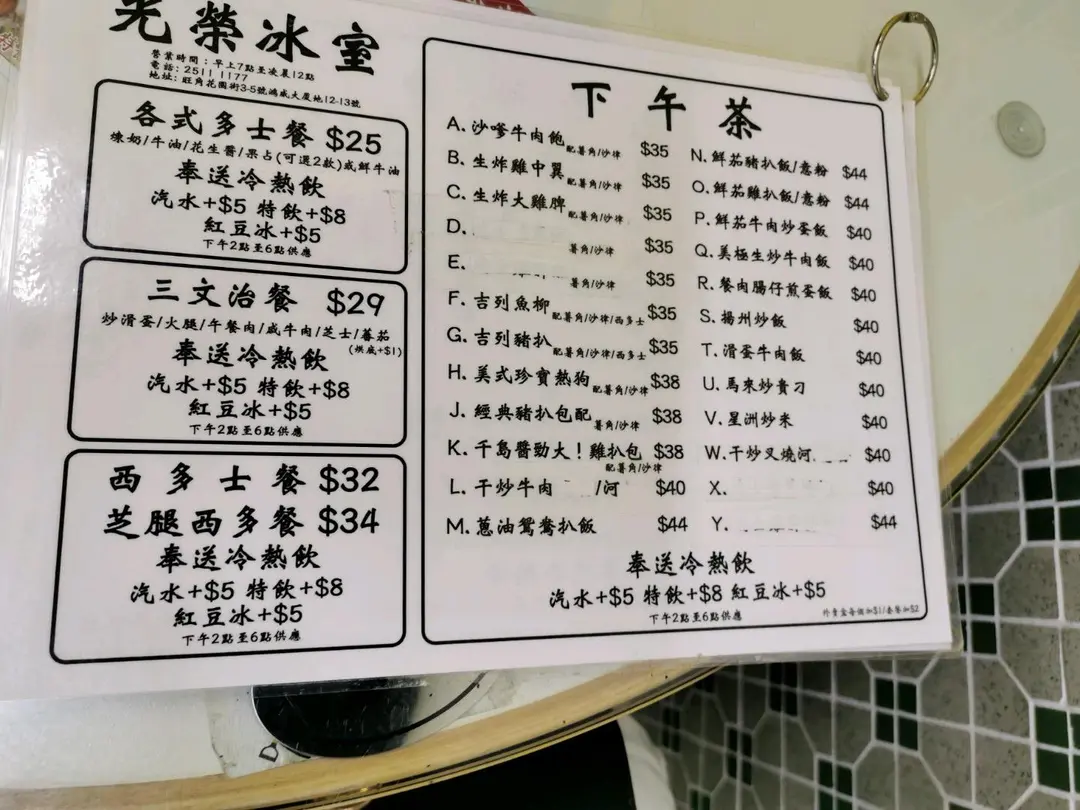 光榮冰室
營業時間：早上7點至凌晨12點
電話：2511 1177
地址：旺角花園街3-5號鴻威大廈地12-13號
各式多士餐 $25
煉奶/牛油/花生醬/果占(可選2款)或鮮牛油
奉送冷熱飲
汽水+$5 特飲+$8
紅豆冰+$5
下午2點至6點供應
三文治餐 $29
炒滑蛋/火腿/午餐肉/咸牛肉/芝士/蕃茄
(烘底+$1)
奉送冷熱飲
汽水+$5 特飲+$8
紅豆冰+$5
下午2點至6點供應
西多士餐 $32
芝腿西多餐 $34
奉送冷熱飲
汽水+$5 特飲+$8
紅豆冰+$5
下午2點至6點供應
下午茶
A. 沙嗲牛肉飽 配薯角/沙律 $35
B. 生炸雞中翼 配薯角/沙律 $35
C. 生炸大雞脾 配薯角/沙律 $35
D. 薯角/沙律 $35
E. 薯角/沙律 $35
F. 吉列魚柳 配薯角/沙律/西多士 $35
G. 吉列豬扒 配薯角/沙律/西多士 $35
H. 美式珍寶熱狗 配薯角/沙律 $38
J. 經典豬扒包配 薯角/沙律 $38
K. 千島醬勁大！雞扒包 $38
配薯角/沙律
L. 干炒牛肉 /河 $40
M. 蔥油鴛鴦扒飯 $44
N. 鮮茄豬扒飯/意粉 $44
O. 鮮茄雞扒飯/意粉 $44
P. 鮮茄牛肉炒蛋飯 $40
Q. 美極生炒牛肉飯 $40
R. 餐肉腸仔煎蛋飯 $40
S. 揚州炒飯 $40
T. 滑蛋牛肉飯 $40
U. 馬來炒貴刁 $40
V. 星洲炒米 $40
W. 干炒叉燒河 $40
X. $40
Y. $44
奉送冷熱飲
汽水+$5 特飲+$8 紅豆冰+$5
下午2點至6點供應
外賣盒每個加$1/套餐加$2